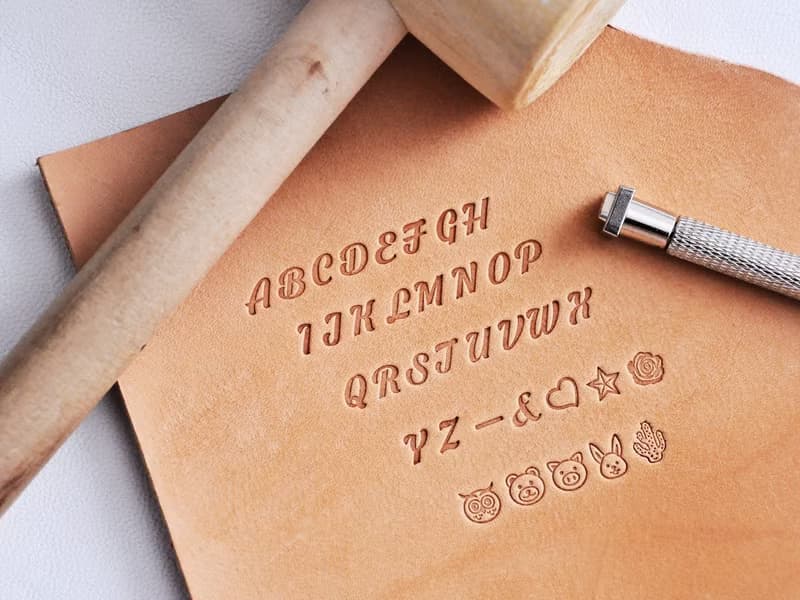 ABCDEFGH
IJKLMNOP
QRSTUVWX
YZ–&